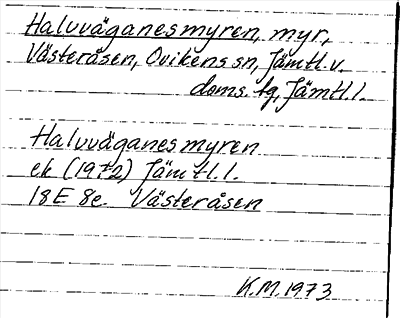 Halvväganesmyren, myr,
Västeråsen, Ovikens sn, Jämtl. v.
doms. tg, Jämtl. l.
Halvväganesmyren
ek (1972) Jämtl. l.
18E 8e. Västeråsen
K.M. 1973